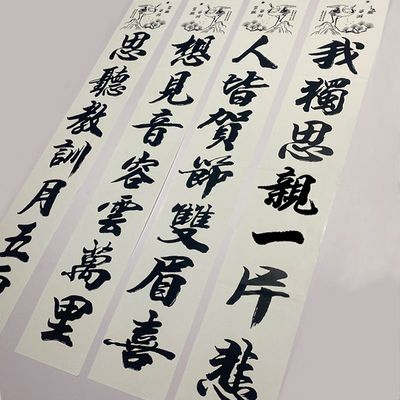 我獨思親一片悲
人皆賀節雙眉喜
想見音容雲萬里
思聽教訓月五